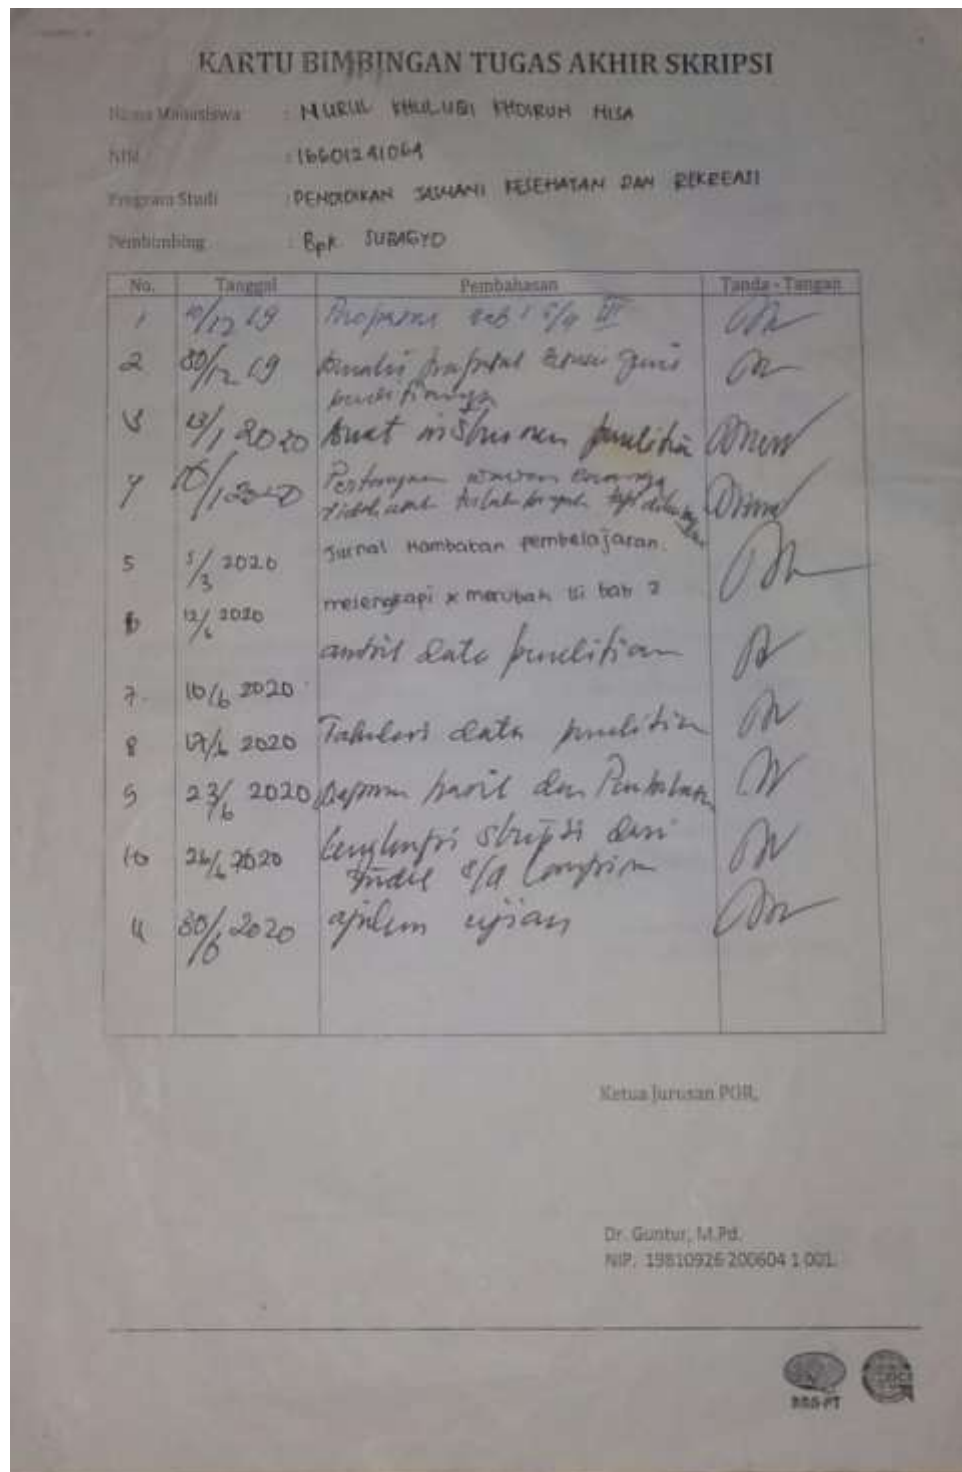 KARTU BIMBINGAN TUGAS AKHIR SKRIPSI
Nama Mahasiswa : NURUL KHULUQI KHOIRUN NISA
NIM : 16601241064
Program Studi : PENDIDIKAN JASMANI KESEHATAN DAN REKREASI
Pembimbing : Bpk. SUBAGYO
No. Tanggal Pembahasan Tanda - Tangan
1 10/12 19 Proposal bab 1 s/d III
2 30/12 19 proposal
3 13/1 2020 buat instrumen penelitian
4
5 5/3 2020 Jurnal Hambatan pembelajaran.
6 12/6 2020 melengkapi x merubah isi bab 2
ambil data penelitian
7. 16/6 2020
8 17/6 2020 Tabulasi data penelitian
9 23/6 2020 Laporan hasil dan Pembahasan
10 26/6 2020 lengkapi skripsi dari
s/d lampiran
11 30/6 2020 ajukan ujian
Ketua Jurusan POR,
Dr. Guntur, M.Pd.
NIP. 19810926 200604 1 001.
BAN-PT